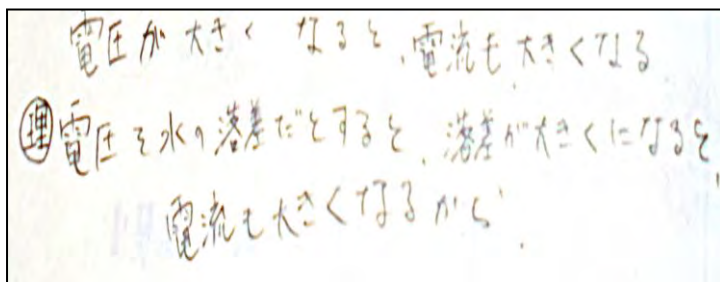 電圧が大きくなると、電流も大きくなる
㊣電圧を水の落差だとすると、落差が大きくになると、
電流も大きくなるから.